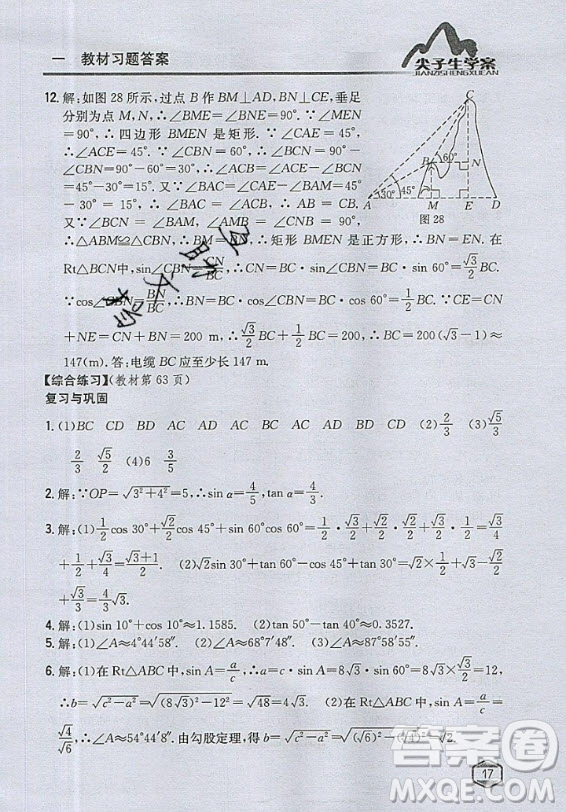 一 教材习题答案
尖子生学案
JIANZISHENGXUEAN
12. 解:如图 28 所示,过点 B 作 BM⊥AD,BN⊥CE,垂足
分别为点 M,N,∴∠BME=∠BNE=90°,∠MEN
=90°,∴四边形 BMEN 是矩形. ∵∠CAE=45°,
∴∠ACE=45°. ∵∠CBN=60°,∴∠BCN=90°-
∠CBN=90°-60°=30°,∴∠ACB=∠ACE-∠BCN=
45°-30°=15°. 又∵∠BAC=∠CAE-∠BAM=
45°-30°=15°,∴∠BAC=∠ACB,∴AB=BC.
又∵∠BCN=∠BAM,∠AMB=∠CNB=90°,
∴△ABM≌△CBN,∴BM=BN,∴矩形 BMEN 是正方形,在
Rt△CBN中,sin∠CBN=CN/BC,∴CN=BC·sin∠CBN=BC·sin 60°=√3/2BC.
∵cos∠CBN=BN/BC,∴BN=BC·cos∠CBN=BC·cos 60°=1/2BC,∴CE=CN
+NE=CN+BN=200 m,∴√3/2BC+1/2BC=200,∴BC=400/(√3+1)≈
147(m). 答:电缆 BC 应至少长 147 m.
C
B
60°
N
45°
30°
A M E D
图 28
【综合练习】(教材第 63 页)
复习与巩固
1. (1)BC CD BD AC AD CD AC BC AD CD (2)2/3 √5/3
2/3 √5/2 (4)6 3/5
2. 解:∵OP=√(3²+4²)=5,∴sin α=4/5,tan α=4/3.
3. 解:(1)1/2cos 30°+√2/2cos 45°+sin 60°cos 60°=1/2×√3/2+√2/2×√2/2+√3/2×1/2=√3/4+
1/2+√3/4=(√3+1)/2. (2)√2sin 30°+tan 60°-cos 45°+tan 30°=√2×1/2+√3-√2/2+
√3/3=4√3/3.
4. 解:(1)sin 10°+cos 10°≈1.1585. (2)tan 50°-tan 40°≈0.3527.
5. 解:(1)∠A≈4°44′58″. (2)∠A≈19°22′18″. (3)∠A≈87°58′55″.
6. 解:(1)在 Rt△ABC 中,sin A=a/c,∴a=c·sin A=8√3·sin 60°=8√3×√3/2=12,
∴b=√(c²-a²)=√((8√3)²-12²)=√48=4√3. (2)在 Rt△ABC 中,∵sin A=a/c=
√4/√6,∴∠A≈54°44′8″. 由勾股定理,得 b=√(c²-a²)=√((√6)²-(√4)²)=√2.
17
答案卷
MXQE.COM